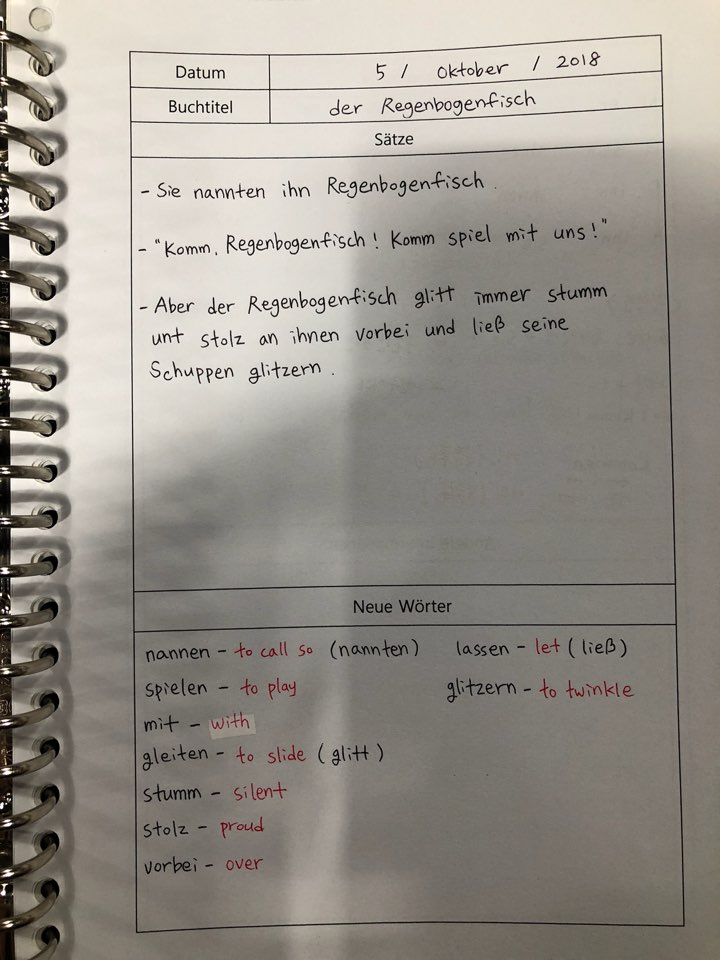 Datum 5 / Oktober / 2018
Buchtitel der Regenbogenfisch
Sätze
- Sie nannten ihn Regenbogenfisch.
- "Komm, Regenbogenfisch! Komm spiel mit uns!"
- Aber der Regenbogenfisch glitt immer stumm
unt stolz an ihnen vorbei und ließ seine
Schuppen glitzern.
Neue Wörter
nannen - to call so (nannten) lassen - let (ließ)
spielen - to play glitzern - to twinkle
mit - with
gleiten - to slide (glitt)
stumm - silent
stolz - proud
vorbei - over